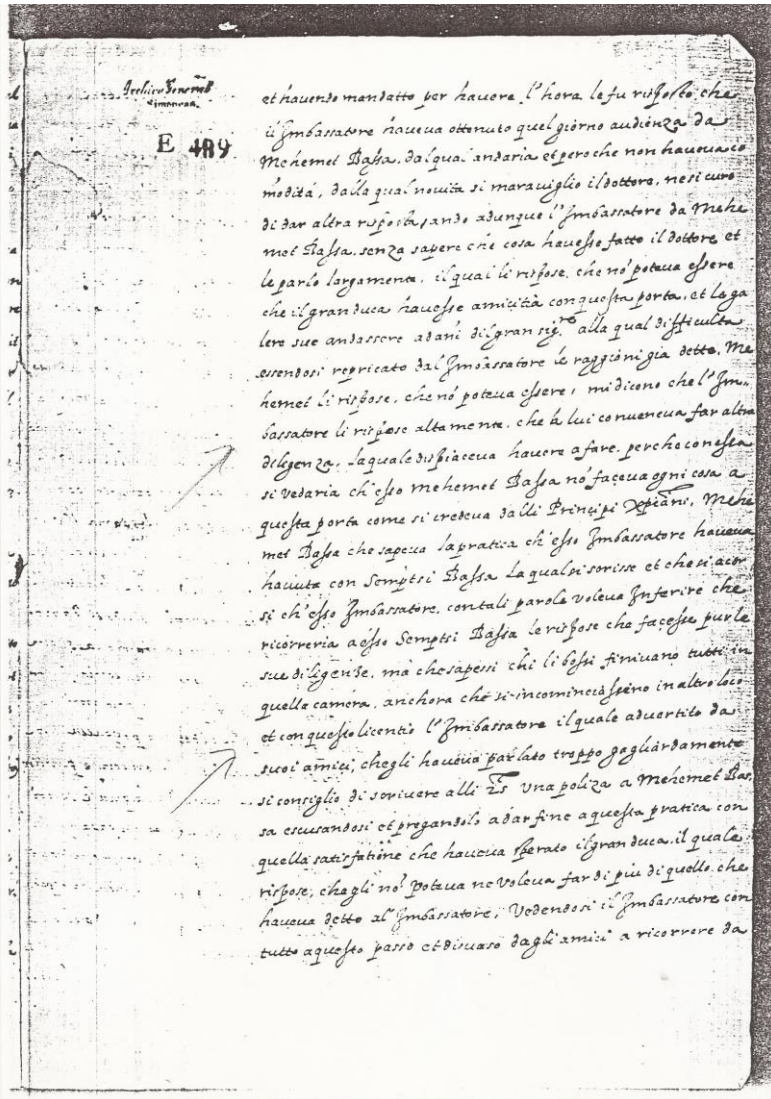 Archivo General
Simancas
E 489
et havendo mandatto per havere l'hora le fu risposto che
il Imbassatore haveva ottenuto quel giorno audienza da
Mehemet Bassa, dal qual andaria et pero che non haveva co
modità, dalla qual novita si maraviglio il dottore, ne si curo
di dar altra risposta, ando adunque l'Imbassatore da Mehe
met Bassa, senza sapere che cosa havesse fatto il dottore et
le parlo largamente, il qual li rispose, che nõ poteva essere
che il gran duca havesse amicitia con questa porta, et le ga
lere sue andassere a dani dil gran sig.re alla qual difficulta
essendosi repricato dal Imbassatore le raggioni gia dette, Me
hemet li rispose, che nõ poteva essere, mi dicono che l'Im
bassatore li rispose altamente, che à lui conveneva far altra
diligenza, la quale dispiaceva havere a fare, perche con essa
si vedaria ch'esso Mehemet Bassa nõ faceva ogni cosa a
questa porta come si credeva dalli Principi Xpiani, Mehe
met Bassa che sapeva la pratica ch'esso Imbassatore haveva
havuta con Semptsi Bassa la qual si sorisse et che si acor
si ch'esso Imbassatore, con tali parole voleva Inferire che
ricorreria a esso Semptsi Bassa le rispose che facesse pur le
sue diligenze, mà che sapessi chi li bossi finivano tutti in
quella camera, anchora che si incominciassino in altro loco
et con questo licentio l'Imbassatore il quale advertito da
suoi amici, che gli haveva parlato troppo gagliardamente
si consiglio di scrivere alli una poliza a Mehemet Bas
sa escusandosi et pregandolo a dar fine a questa pratica con
quella satisfatione che haveva sperato il gran duca, il quale
rispose, che gli nõ poteva ne voleva far di piu di quello che
haveva detto al Imbassatore, Vedendosi il Imbassatore con
tutto a questo passo et disuaso dagli amici a ricorrere da